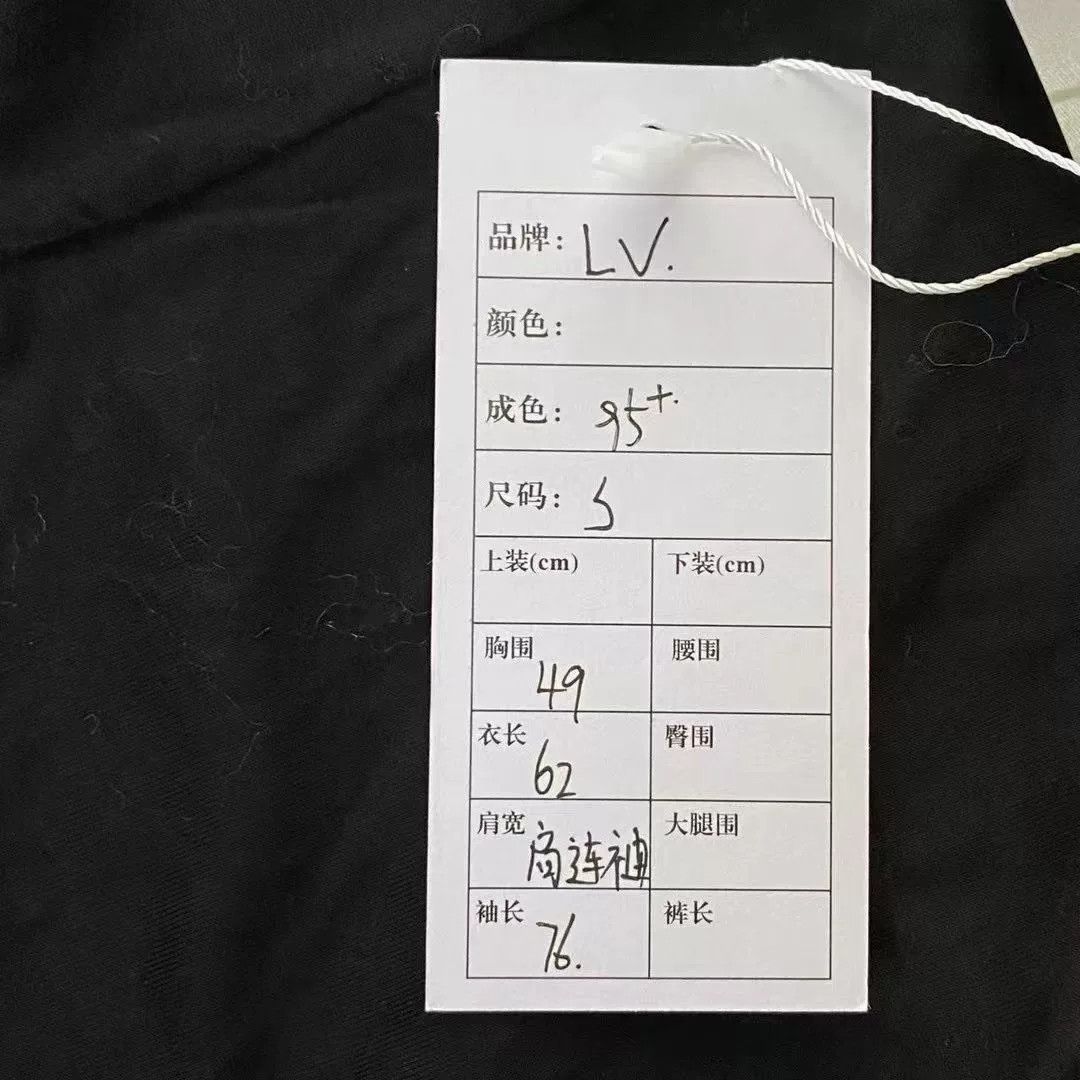 品牌: LV.
颜色:
成色: 95+.
尺码: S
上装(cm) 下装(cm)
胸围 49 腰围
衣长 62 臀围
肩宽 肩连袖 大腿围
袖长 76. 裤长